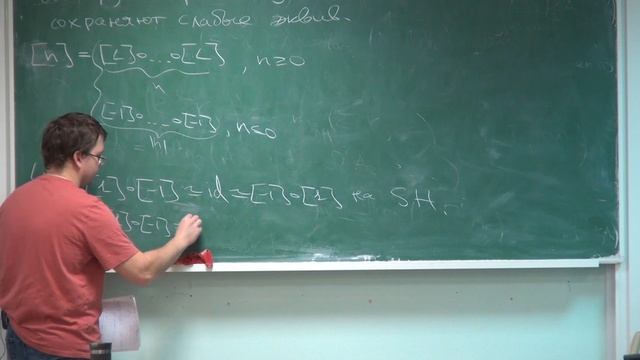 сохраняют слабые эквив.
[n] = { [1]∘...∘[1] , n≥0
n
[-1]∘...∘[-1] , n≤0
|n|
1]∘[-1] ≃ id ≃ [-1]∘[1] на SH.
]∘[-1]